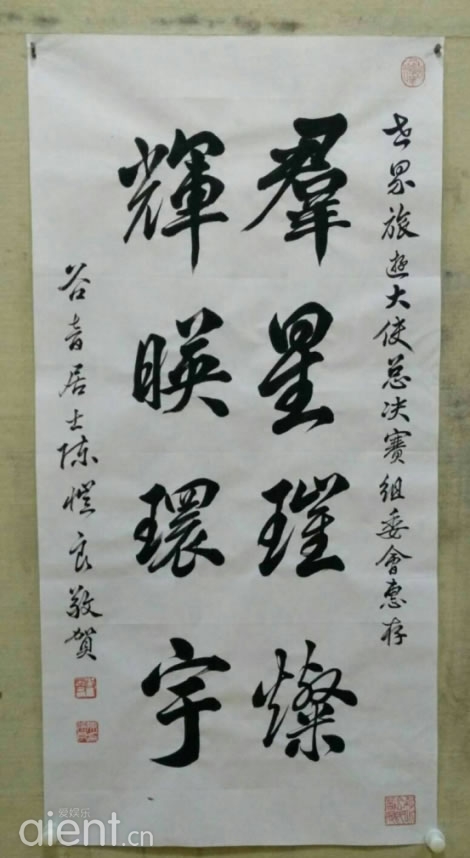 世界旅遊大使总决赛组委會惠存
羣星璀燦
輝暎環宇
谷音居士陈愷良敬賀
爱娱乐
aient.cn